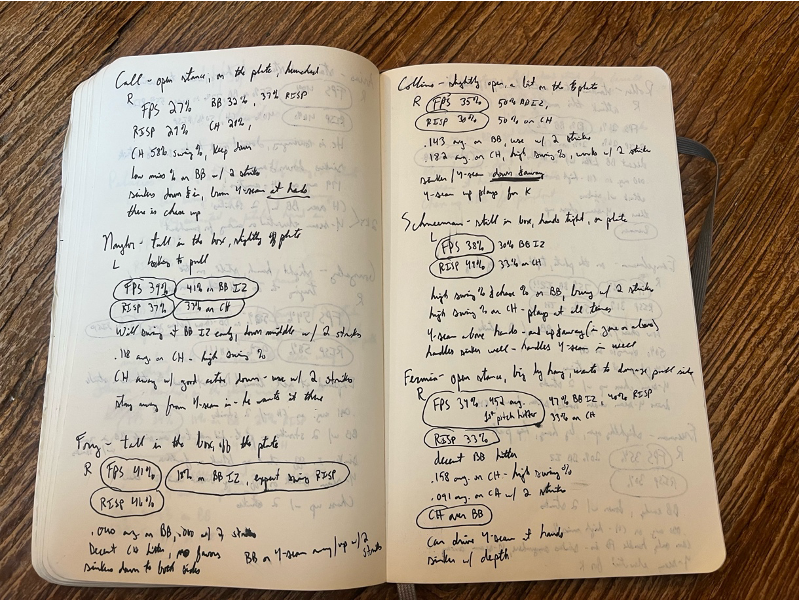 Call - open stance, on the plate, hunched
R FPS 27% BB 32%, 37% RISP
RISP 27% CH 20%,
CH 58% swing %, keep down
low miss % on BB w/ 2 strikes
sinkers down & in, 4-seam at hands
there is chase up
Naylor - tall in the box, slightly off plate
L looking to pull
FPS 39% 41% in BB IZ
RISP 37% 37% on CH
Will swing at BB IZ early, down middle w/ 2 strikes
.118 avg. on CH - high swing %
CH away w/ good down - use w/ 2 strikes
stay away from 4-seam in - he wants it there
Fry - tall in the box, off the plate
R FPS 40% on BB IZ, expect swing RISP
RISP 46%
avg on BB, w/ 2 strikes
Decent CH hitter, no
sinkers down to both sides
BB or 4-seam away/up w/ 2 strikes
Collins - slightly open, a bit on the plate
R FPS 35% 50% BB IZ,
RISP 30% 50% on CH
.143 avg. on BB, use w/ 2 strikes
.182 avg. on CH, high swing %, works w/ 2 strikes
sinker/4-seam down & away
4-seam up plays for K
Schneeman - still in box, hands tight, on plate
L FPS 38% 30% BB IZ
RISP 48% 33% on CH
high swing % & chase % on BB, w/ 2 strikes
high swing % on CH - plays at all times
4-seam above hands - and up & away (in zone or above)
handles sinker well - handles 4-seam in well
Fermin - open stance, big leg hang, wants to damage pull side
R FPS 34% .452 avg. 47% BB IZ, 40% RISP
1st pitch hitter 33% on CH
RISP 33%
decent BB hitter
.158 avg. on CH - high swing %
.091 avg. on CH w/ 2 strikes
CH over BB
can drive 4-seam at hands
sinker w/ depth